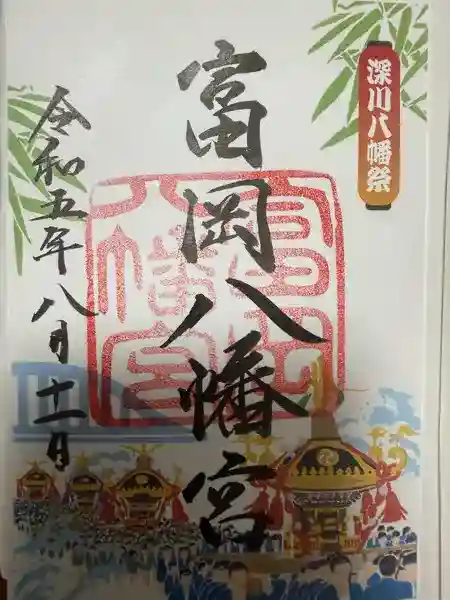 深川八幡祭
富岡八幡宮
令和五年八月十一日
富岡八幡宮